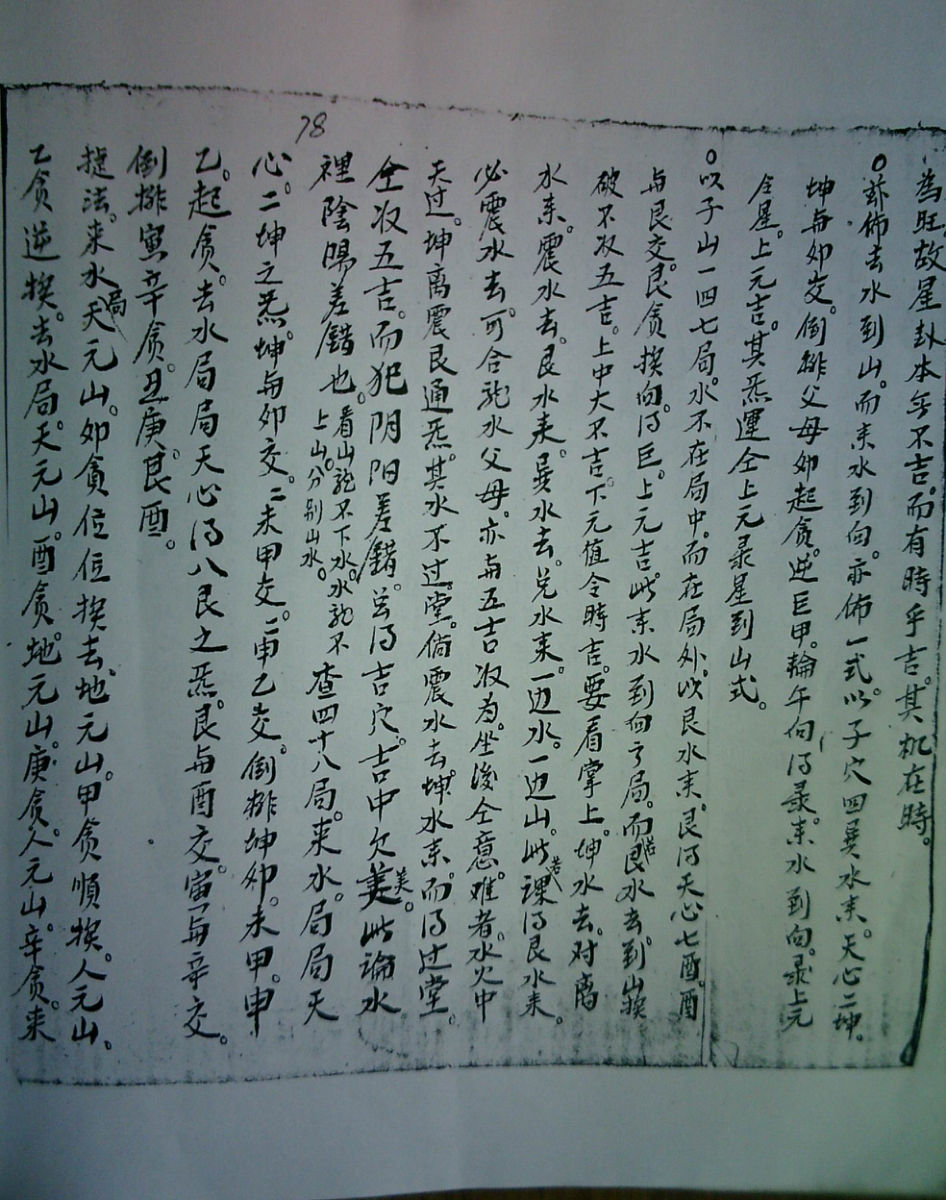 78
為旺。故星卦本無不吉。而有時乎吉。其机在時。
○茲佈去水到山。而来水到向。亦佈一式。以子穴四巽水来。天心二坤。
坤与卯交。倒排父母卯起貪。逆巨甲。輪午向得录。来水到向。录上元
全星。上元吉。其炁運仝上元录星到山式。
○以子山一四七局。水不在局中。而在局外。以艮水来。艮得天心七酉。酉
与艮交。艮貪挨向得巨。上元吉。此来水到向之局。而若艮水去到山挨
破不収五吉。上中大不吉。下元值令時吉。要看掌上。坤水去。对离
水来。震水去。艮水来。巽水去。兑水来。一边水。一边山。此若課得艮水来。
必震水去。可合龍水父母。亦為五吉収為。坐後仝意。难者水火中
天过。坤离震艮通炁。其水不过堂。倘震水去。坤水来。而得过堂。
全収五吉。而犯阴阳差錯。若得吉穴。吉中欠美美。此論水
裡陰陽差錯也。看山龍不下水。水龍不上山。分别山水。查四十八局。来水。局局天
心。二坤之炁。坤与卯交。二未甲交。二申乙交。倒排坤卯。未甲。申
乙。起貪。去水局局天心得八艮之炁。艮与酉交。寅与辛交。
倒排寅辛貪。丑庚。艮酉。
捷法。来水局天元山。卯貪位位挨去。地元山。甲貪順挨。人元山。
乙貪逆挨。去水局。天元山。酉貪。地元山。庚貪。人元山。辛貪。来